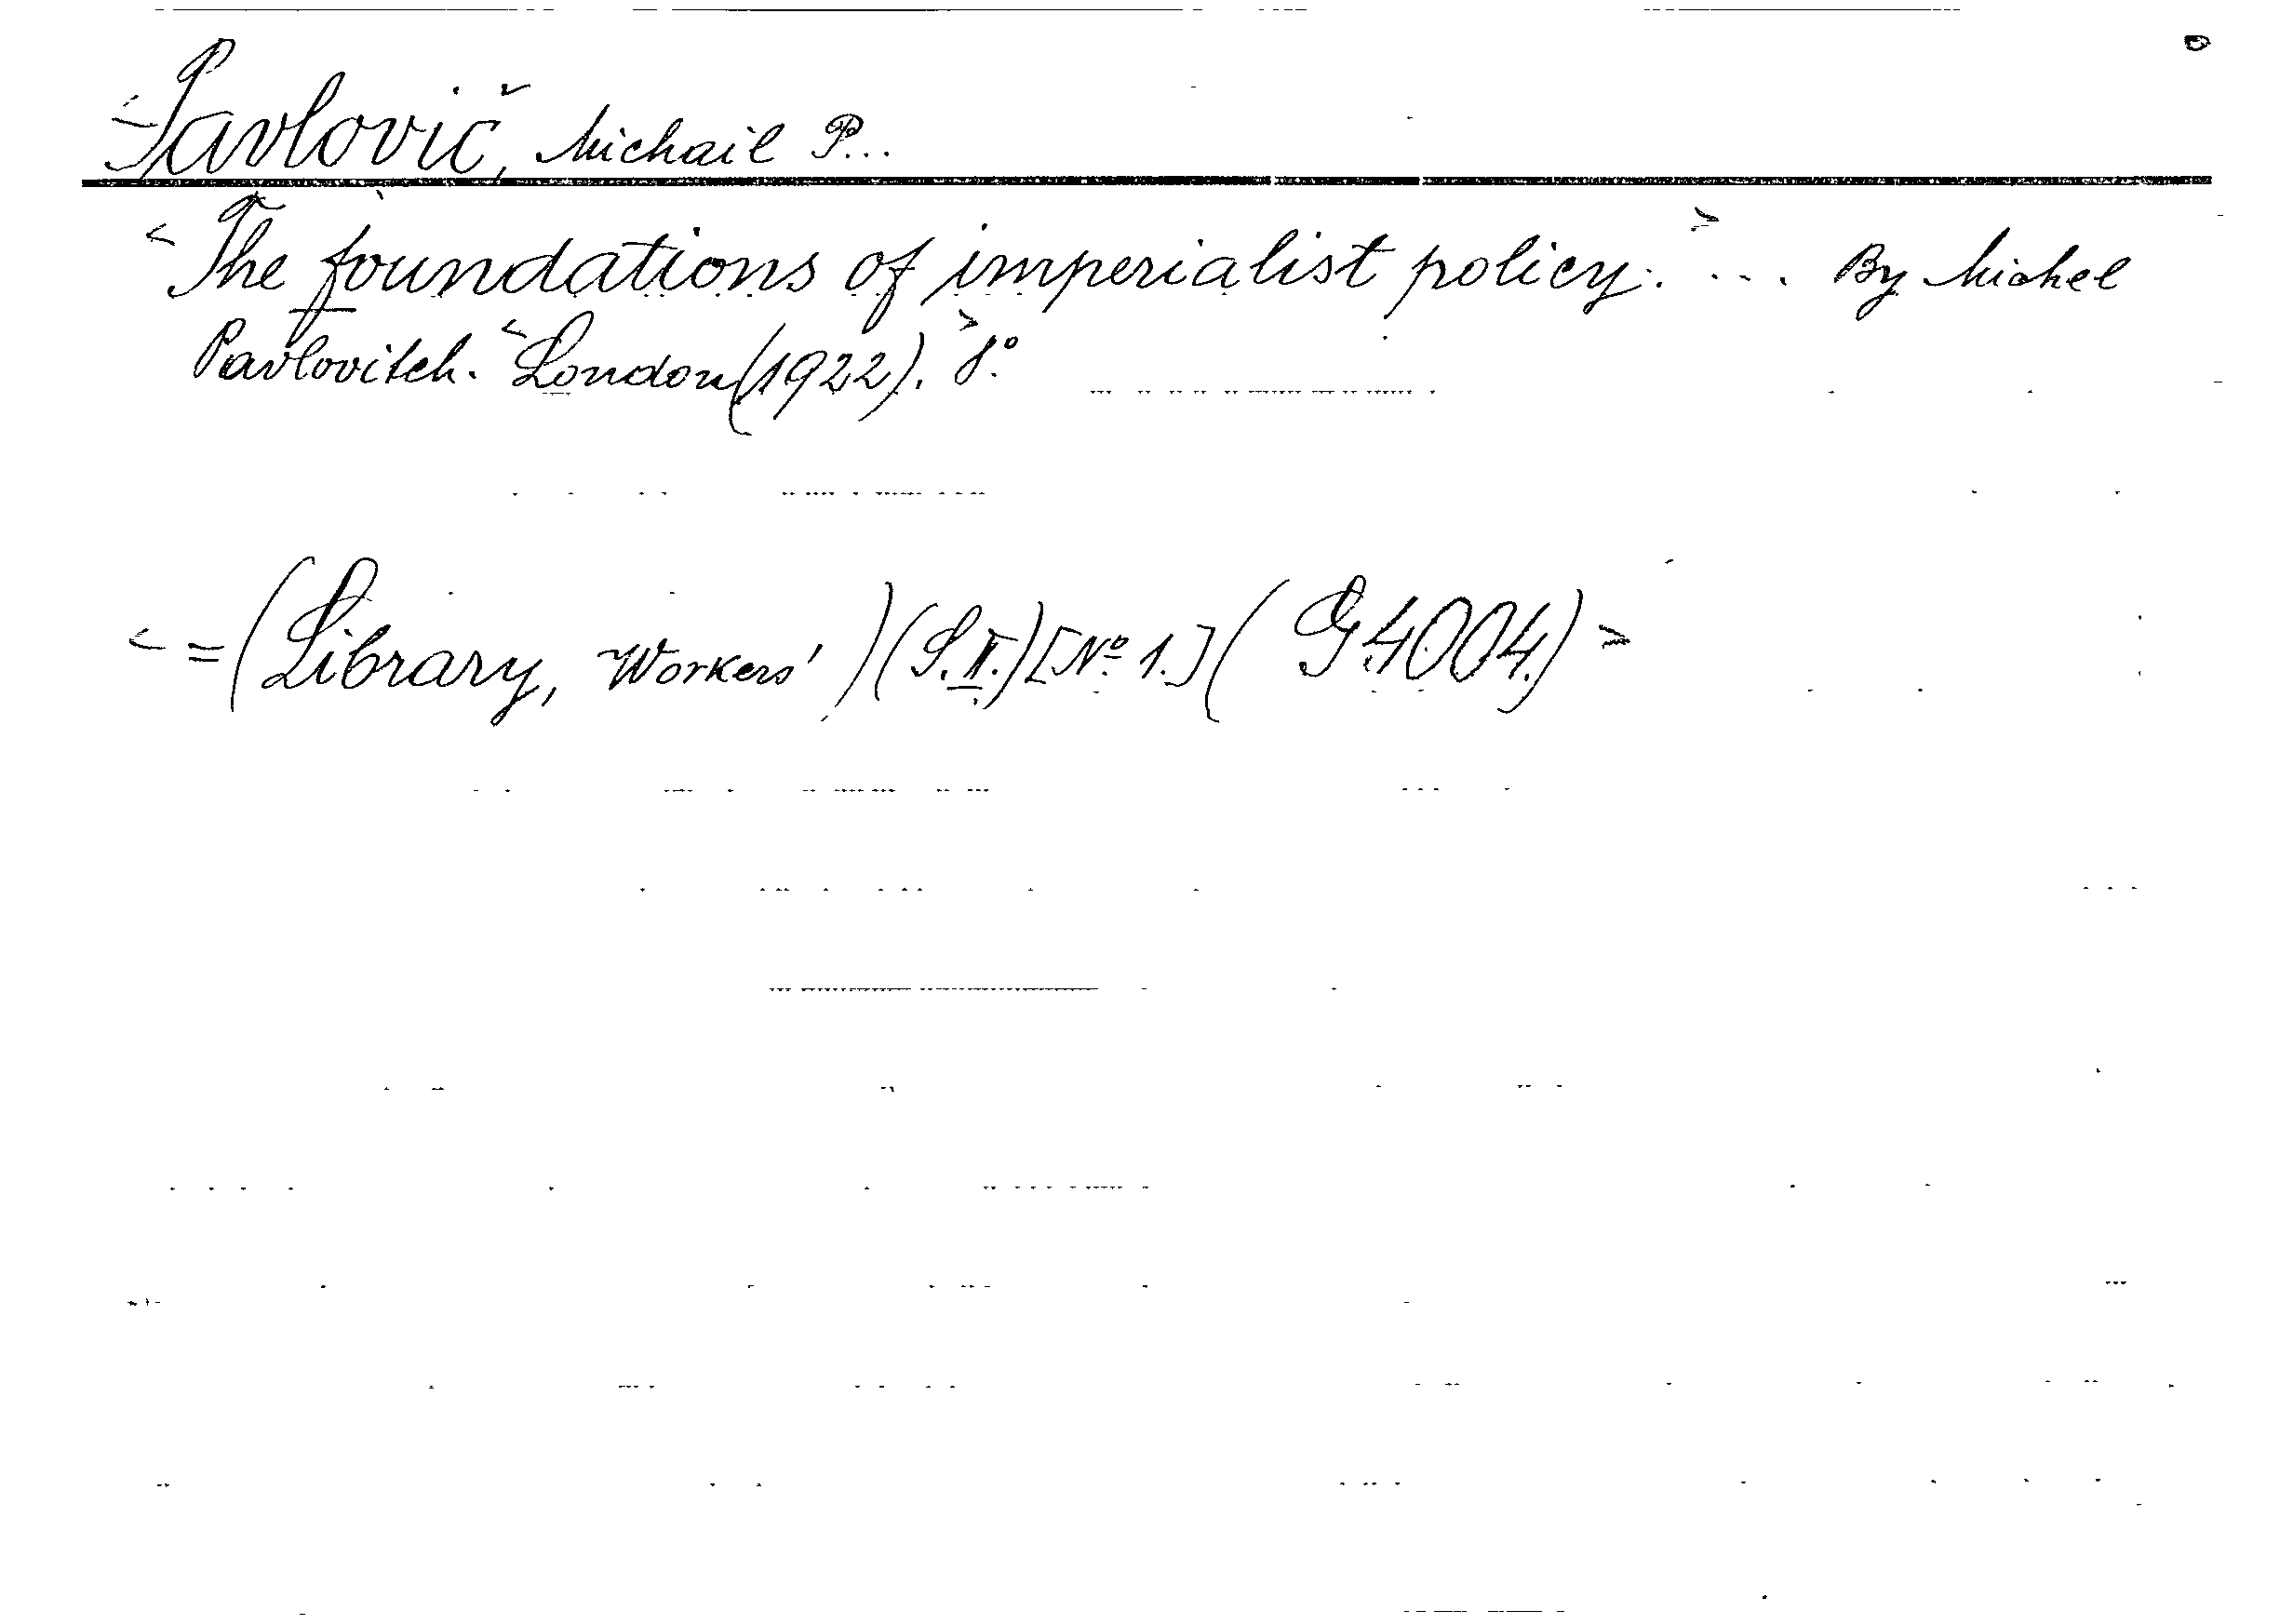 <Pavlovič, Michail P...
<The foundations of imperialist policy.> ... By Michel
Pavlovitch. <London (1922).> 8°.
<=(Library, Workers')(S.II.)[Nº 1.](G.4004.)>